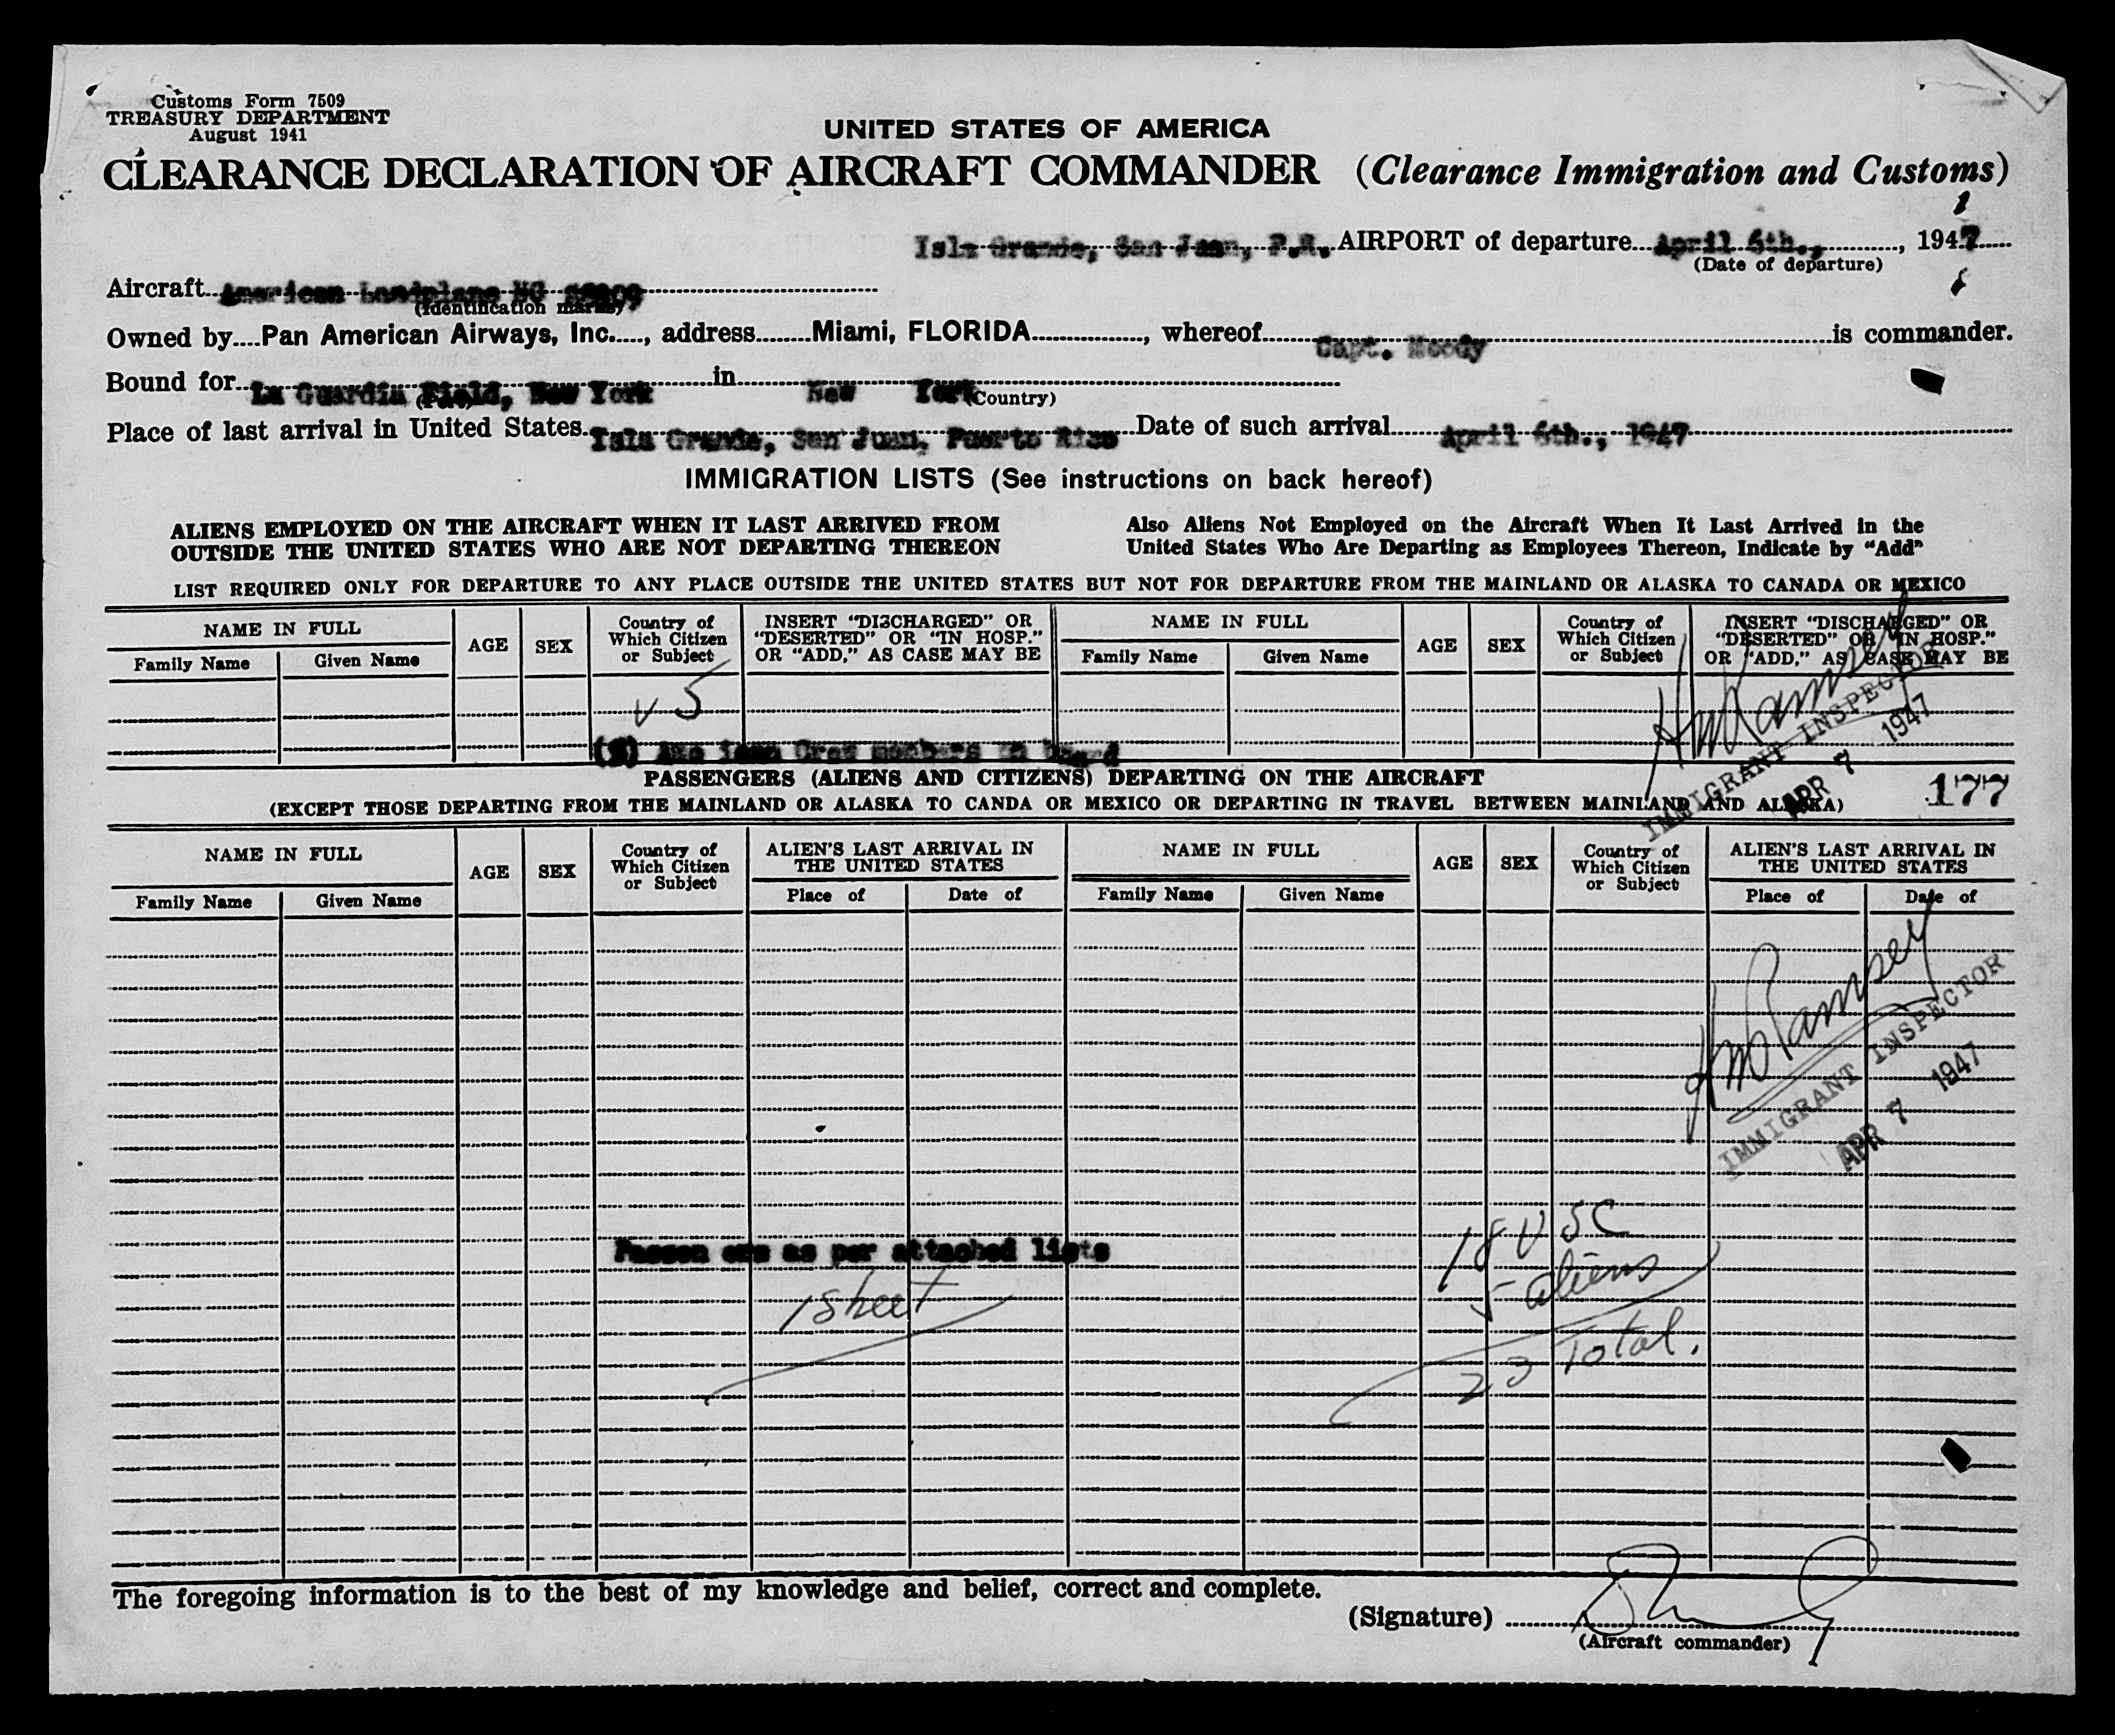 Customs Form 7509
TREASURY DEPARTMENT
August 1941
UNITED STATES OF AMERICA
CLEARANCE DECLARATION OF AIRCRAFT COMMANDER (Clearance Immigration and Customs)
Isla Grande, San Juan, P.R. AIRPORT of departure April 6th., , 1947
(Date of departure)
Aircraft American Landplane NC
(Identification marks)
Owned by Pan American Airways, Inc. , address Miami, FLORIDA , whereof Capt. Moody is commander.
Bound for La Guardia Field, New York in New York
(Country)
Place of last arrival in United States Isla Grande, San Juan, Puerto Rico Date of such arrival April 6th., 1947
IMMIGRATION LISTS (See instructions on back hereof)
ALIENS EMPLOYED ON THE AIRCRAFT WHEN IT LAST ARRIVED FROM
OUTSIDE THE UNITED STATES WHO ARE NOT DEPARTING THEREON
Also Aliens Not Employed on the Aircraft When It Last Arrived in the
United States Who Are Departing as Employees Thereon, Indicate by "Add"
LIST REQUIRED ONLY FOR DEPARTURE TO ANY PLACE OUTSIDE THE UNITED STATES BUT NOT FOR DEPARTURE FROM THE MAINLAND OR ALASKA TO CANADA OR MEXICO
NAME IN FULL
Family Name Given Name
AGE
SEX
Country of
Which Citizen
or Subject
INSERT "DISCHARGED" OR
"DESERTED" OR "IN HOSP."
OR "ADD," AS CASE MAY BE
NAME IN FULL
Family Name Given Name
AGE
SEX
Country of
Which Citizen
or Subject
INSERT "DISCHARGED" OR
"DESERTED" OR "IN HOSP."
OR "ADD," AS CASE MAY BE
v 5
Crew members on board
HW Ramsey
IMMIGRANT INSPECTOR
APR 7 1947
PASSENGERS (ALIENS AND CITIZENS) DEPARTING ON THE AIRCRAFT
(EXCEPT THOSE DEPARTING FROM THE MAINLAND OR ALASKA TO CANDA OR MEXICO OR DEPARTING IN TRAVEL BETWEEN MAINLAND AND ALASKA)
177
NAME IN FULL
Family Name Given Name
AGE
SEX
Country of
Which Citizen
or Subject
ALIEN'S LAST ARRIVAL IN
THE UNITED STATES
Place of Date of
NAME IN FULL
Family Name Given Name
AGE
SEX
Country of
Which Citizen
or Subject
ALIEN'S LAST ARRIVAL IN
THE UNITED STATES
Place of Date of
HW Ramsey
IMMIGRANT INSPECTOR
APR 7 1947
Passen ers as per attached lists
1 sheet
18 USC
5 aliens
23 Total.
The foregoing information is to the best of my knowledge and belief, correct and complete.
(Signature)
(Aircraft commander)